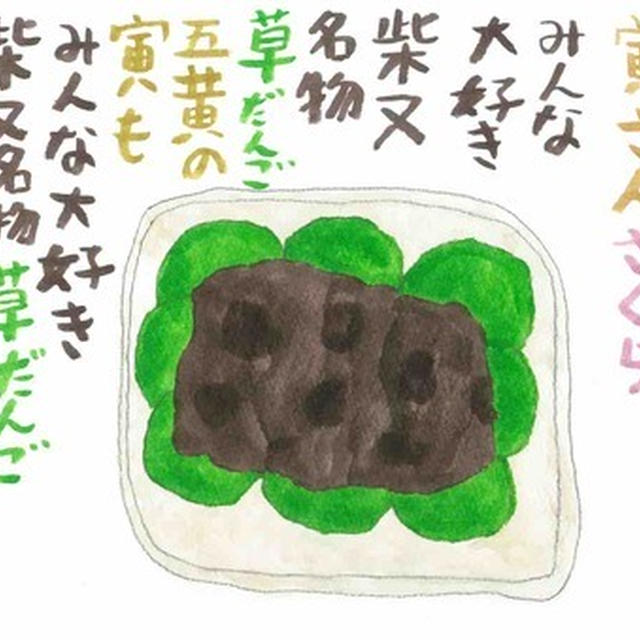 寅さん さくら
みんな
大好き
柴又
名物
草だんご
五黄の
寅も
みんな大好き
柴又名物 草だんご